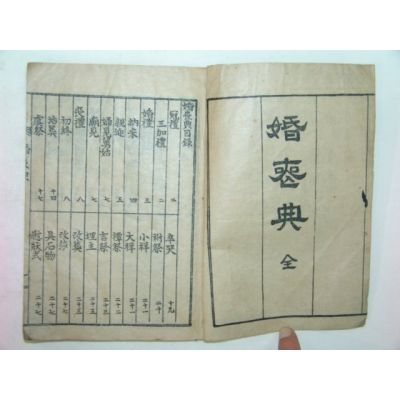 婚喪典 全
婚喪典目錄
冠禮
三加禮 二
婚禮 三
納采 四
親迎 五
婦見舅姑 七
廟見 七
喪禮 八
初終 八
治葬 十四
虞祭 十七
卒哭 十九
祔祭 二十
小祥 二十一
大祥 二十一
禫祭 二十二
吉祭 二十三
埋主 二十三
改葬 二十三
改莎
具石物 二十七
獻式 二十七